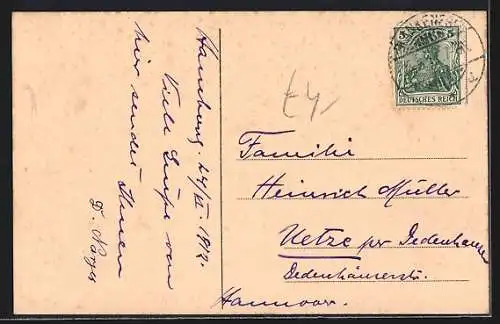 Hamburg. 24/VI 1912.
Viele Grüße von
hier sendet Ihnen
D.
Familie
Heinrich Müller
Uetze per Dedenhausen
Dedenhäuserstr.
Hannover.
5 5
DEUTSCHES REICH